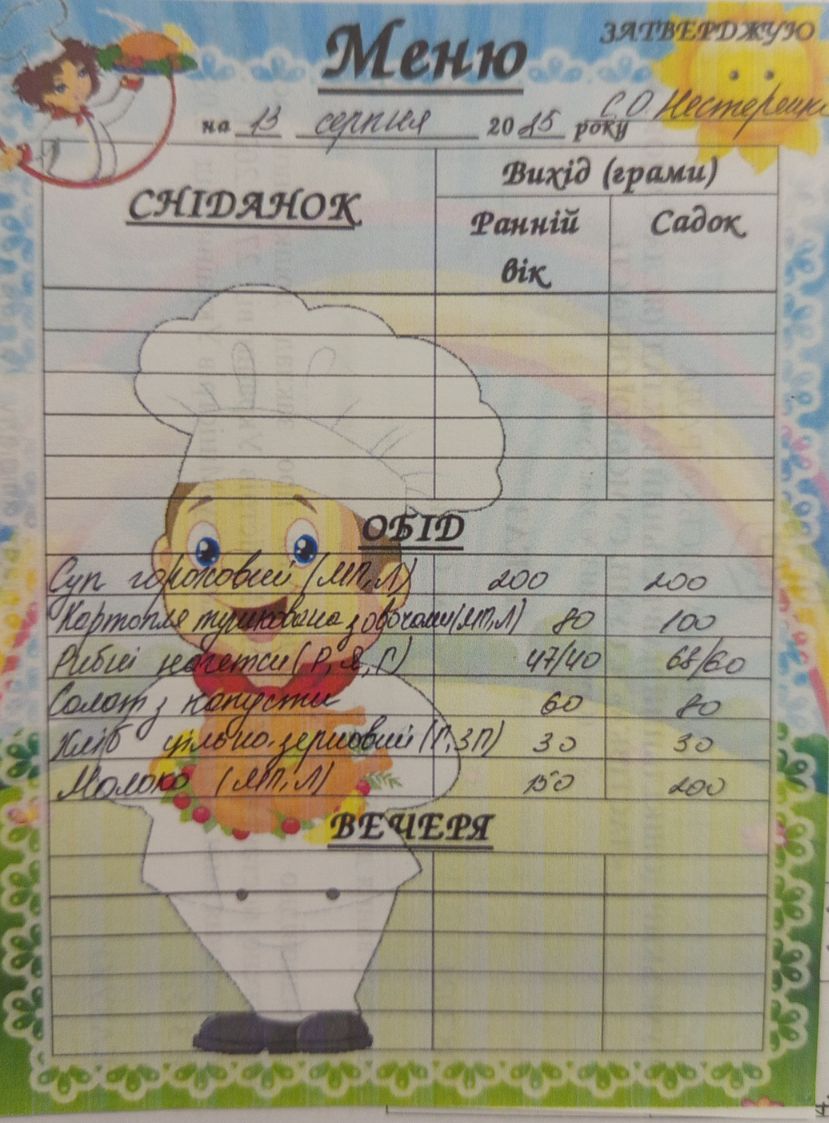 ЗАТВЕРДЖУЮ
Меню
С.О. Нестеренко
на 13 серпня 2025 року
СНІДАНОК
Вихід (грами)
Ранній вік
Садок
ОБІД
Суп гороховий (МП, Л) 200 200
Картопля тушкована з овочами (МП, Л) 80 100
Рибні нагетси (Р, Я, Г) 47/40 68/60
Салат з капусти 60 80
Хліб цільно-зерновий (Г, ЗП) 30 30
Молоко (МП, Л) 150 200
ВЕЧЕРЯ